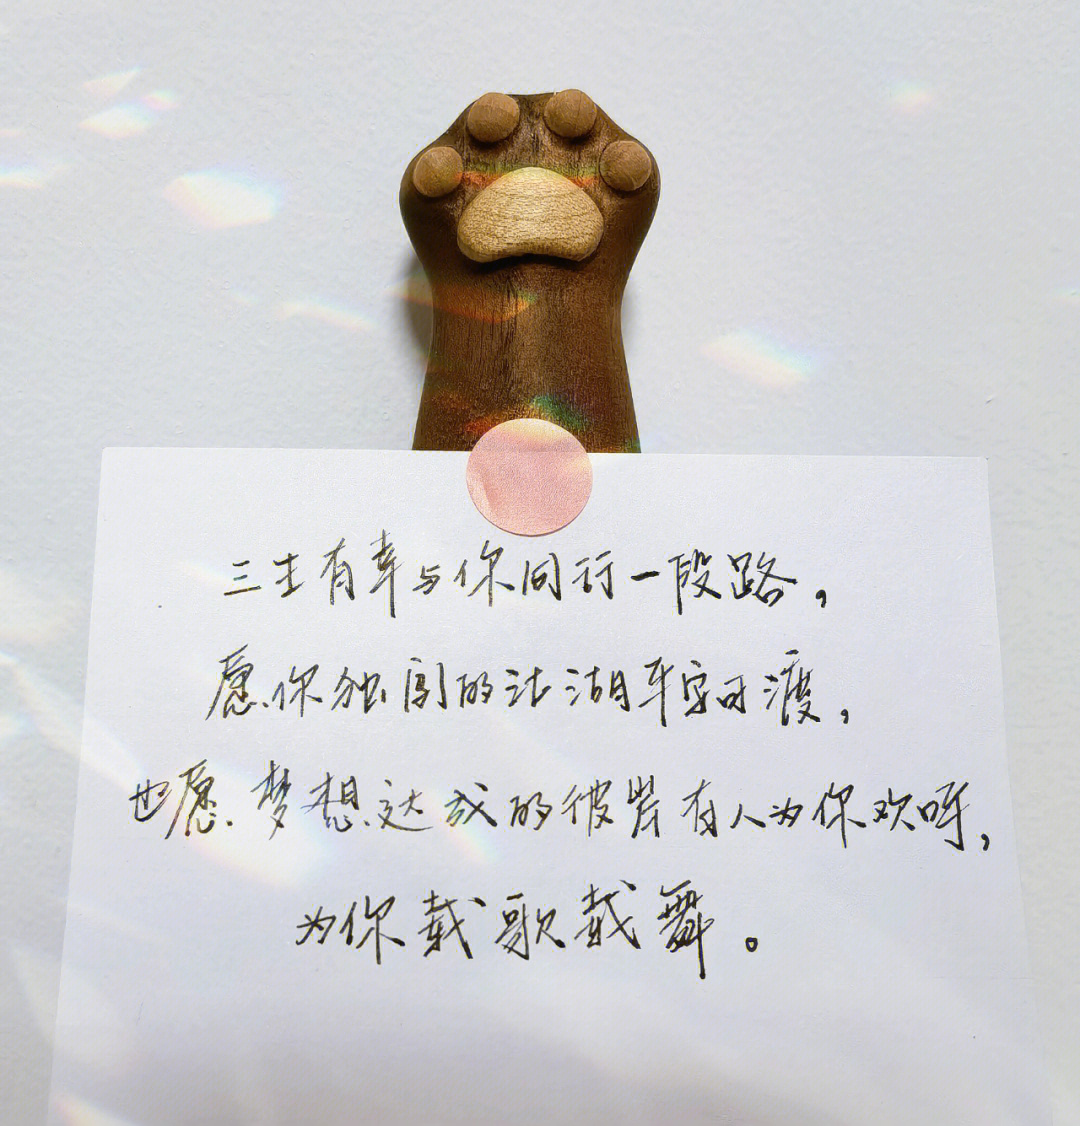 三生有幸与你同行一段路，
愿你独闯的江湖平安可渡，
也愿梦想达成的彼岸有人为你欢呼，
为你载歌载舞。